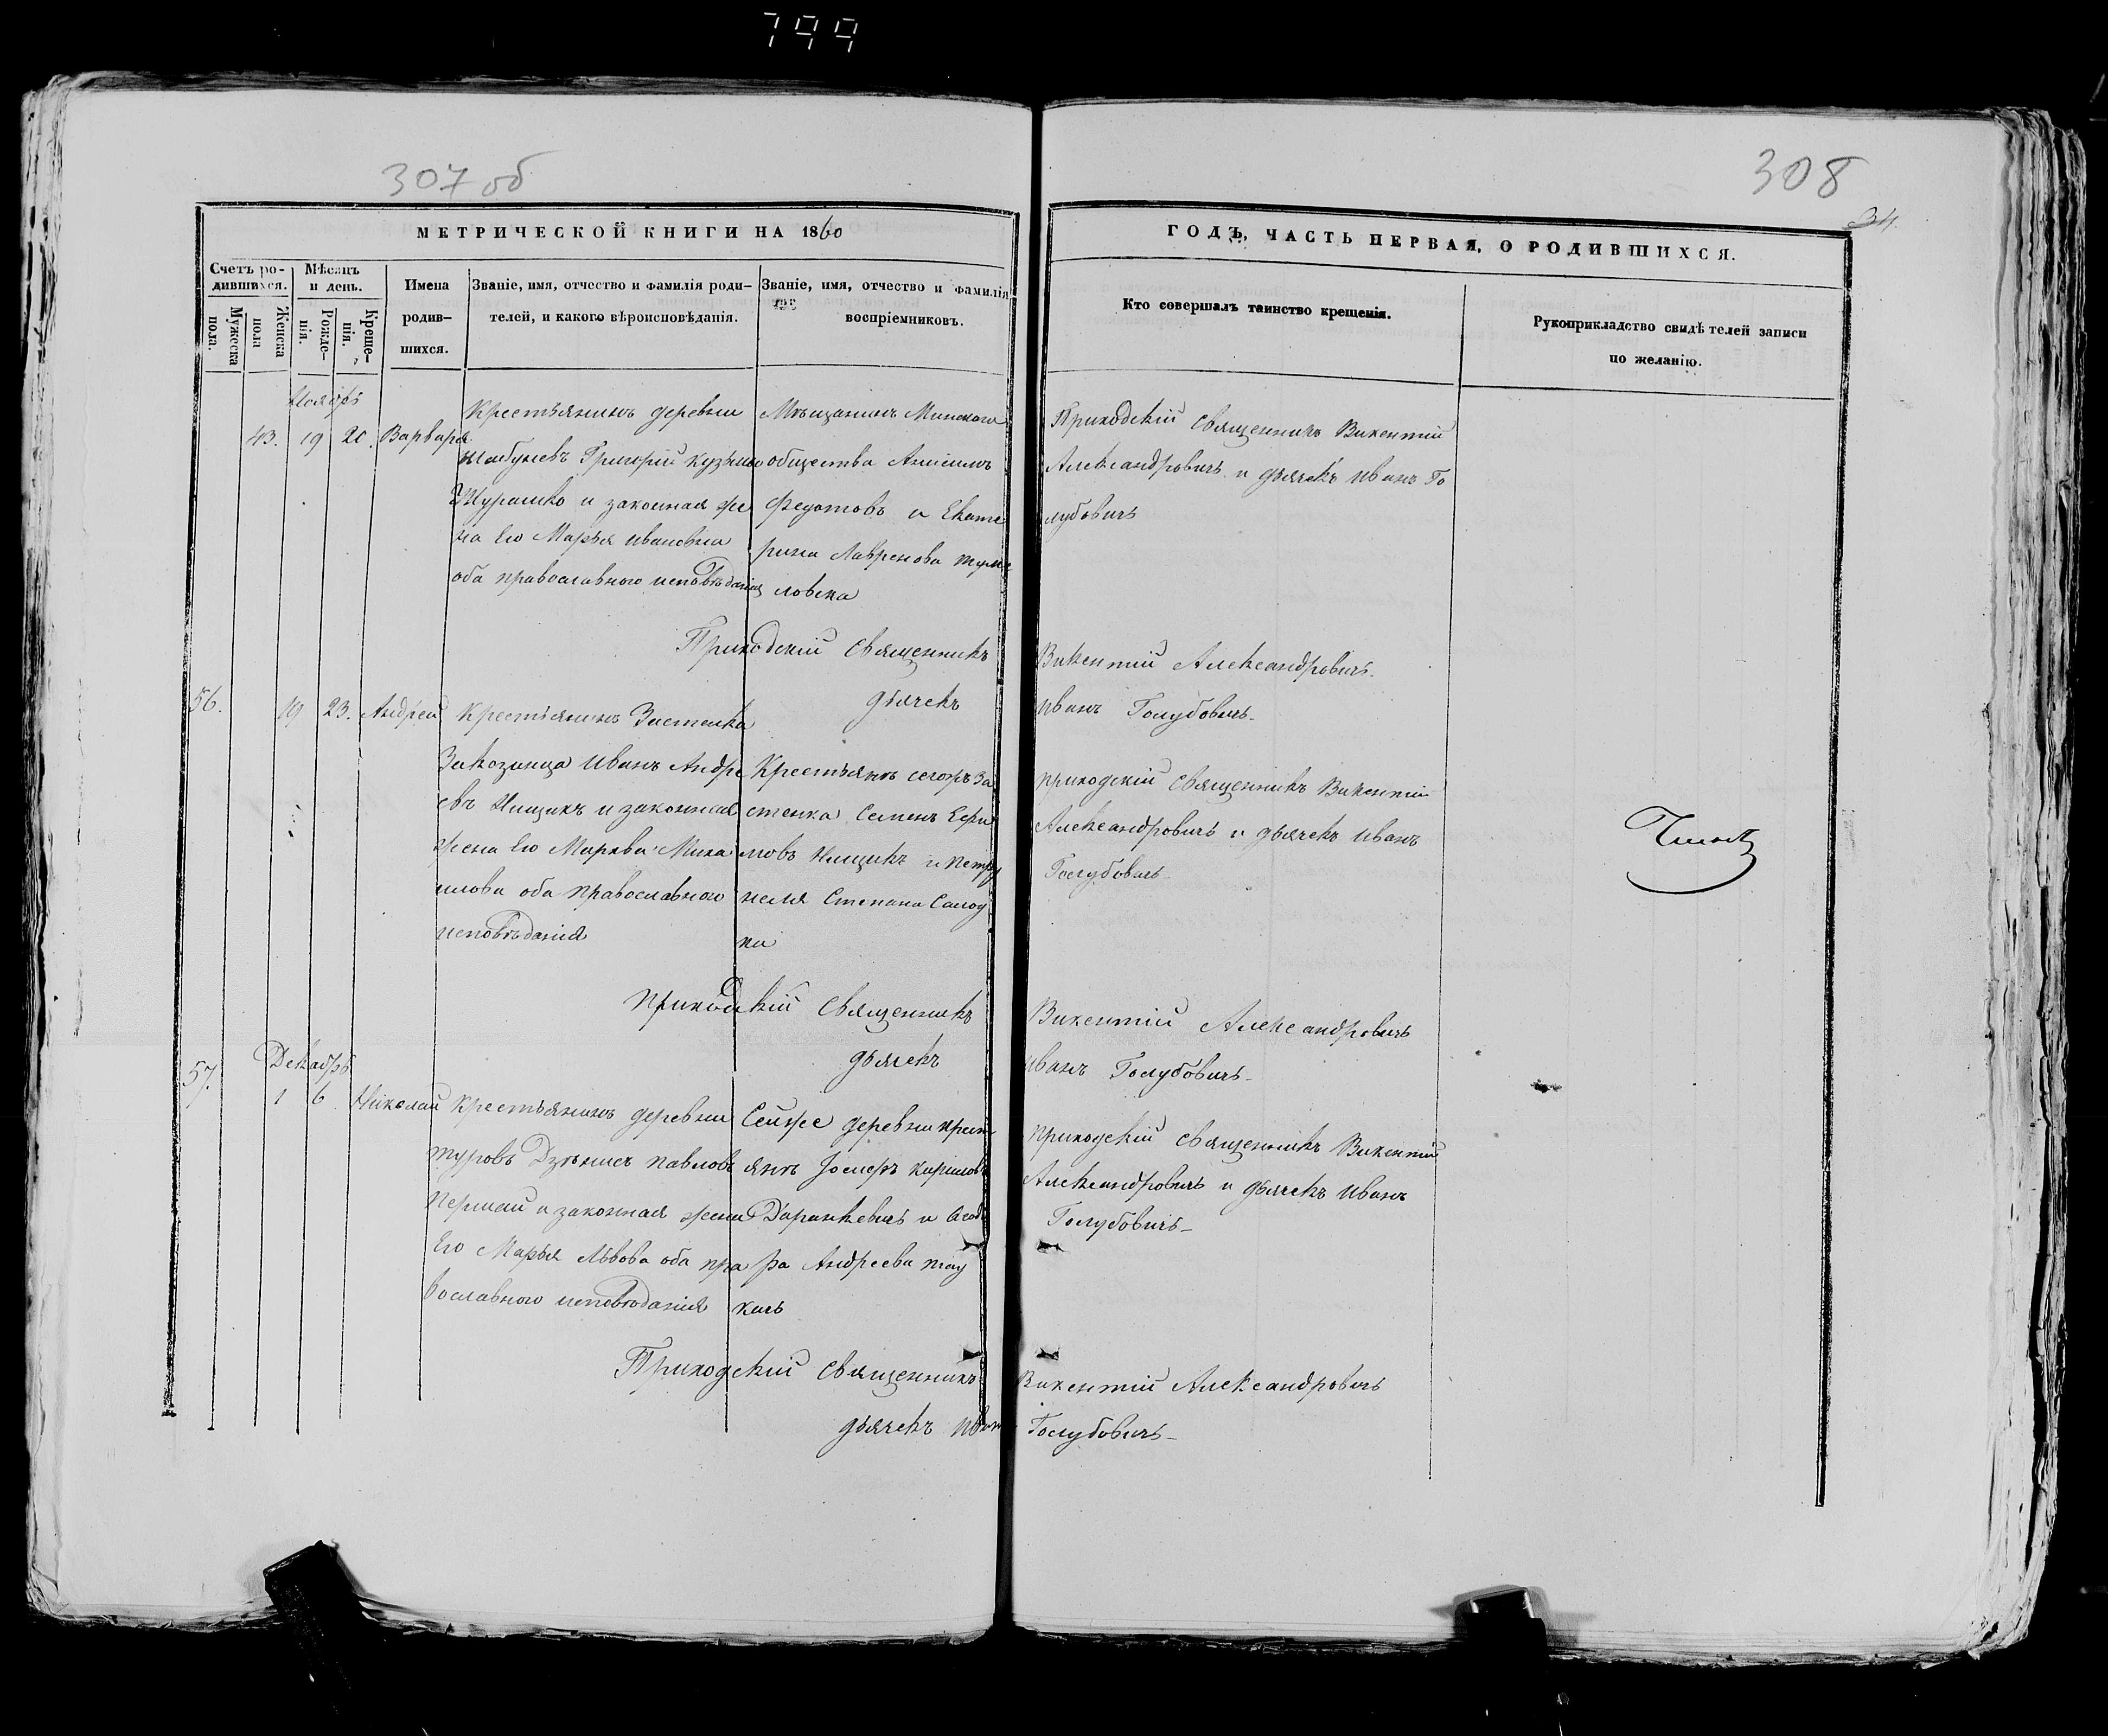 799
307 об
308
34.
МЕТРИЧЕСКОЙ КНИГИ НА 1860
Счетъ ро-
дившихся.
Мужеска
пола.
Женска
пола
Мѣсяцъ
и день.
Рожде-
нія.
Креще-
нія.
Имена
родив-
шихся.
Званіе, имя, отчество и фамилія роди-
телей, и какого вѣроисповѣданія.
Званіе, имя, отчество и фамилія
воспріемниковъ.
ГОДЪ, ЧАСТЬ ПЕРВАЯ, О РОДИВШИХСЯ.
Кто совершалъ таинство крещенія.
Рукоприкладство свидѣтелей записи
по желанію.
Ноябрь
43. 19 20. Варвара
Крестьянинъ деревни
Григорій
и законная же
на Его Марья Иванова
оба православного исповѣданія
Мѣщанинъ Минского
общества
Федотовъ и Екате
рина Лавренова
Приходскій Священникъ Викентій
Александровичъ и дьячекъ Иванъ Го
лубовичъ
Приходскій Священникъ Викентій Александровичъ.
дьячекъ Иванъ Голубовичъ
56. 19 23. Андрей
Крестьянинъ Застенка
Иванъ Андре
евъ Нищикъ и законная
жена Его Миха
илова оба православного
исповѣданія
Крестьяне За
стенка Семенъ Ефи
мовъ Нищикъ и Петру
неля Степана
приходскій Священникъ Викентій
Александровичъ и дьячекъ Иванъ
Голубовичъ
приходскій Священникъ Викентій Александровичъ
дьячекъ Иванъ Голубовичъ
57. Декабрь
1 6 Николай
Крестьянинъ деревни
туровъ Павловъ
и законная жена
Его Марья Львова оба пра
вославного исповѣданія
Сей же деревни крест
яне Іосифъ Кириловъ
и Феодо
ра Андреева
приходскій Священникъ Викентій
Александровичъ и дьячекъ Иванъ
Голубовичъ
Приходскій Священникъ Викентій Александровичъ
дьячекъ Иванъ Голубовичъ